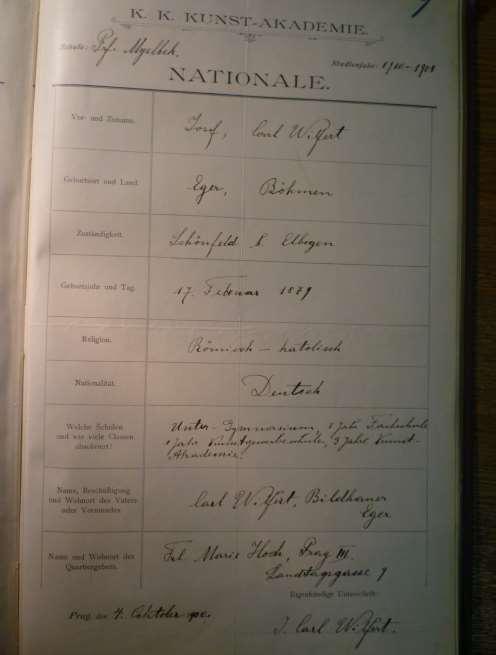 K. K. KUNST-AKADEMIE.
Schule: Prf. Myslbek.
Studienjahr: 1900-1901
NATIONALE.
Vor- und Zuname.
Josef, Carl Wilfert
Geburtsort und Land.
Eger, Böhmen
Zuständigkeit.
Schönfeld b. Elbogen
Geburtsjahr und Tag.
17. Februar 1879
Religion.
Römisch - katolisch
Nationalität.
Deutsch
Welche Schulen
und wie viele Classen
absolviert?
Unter-Gymnasium, 1 Jahr Fachschule
1 Jahr Kunstgewerbeschule, 3 Jahre Kunst-
Akademie.
Name, Beschäftigung
und Wohnort des Vaters
oder Vormundes
Carl Wilfert, Bildhauer
Eger
Name und Wohnort des
Quartiergebers.
Frl. Marie Hoch, Prag III.
Landtagsgasse 9
Eigenhändige Unterschrift:
Prag, den 4. Oktober 900.
J. Carl Wilfert.